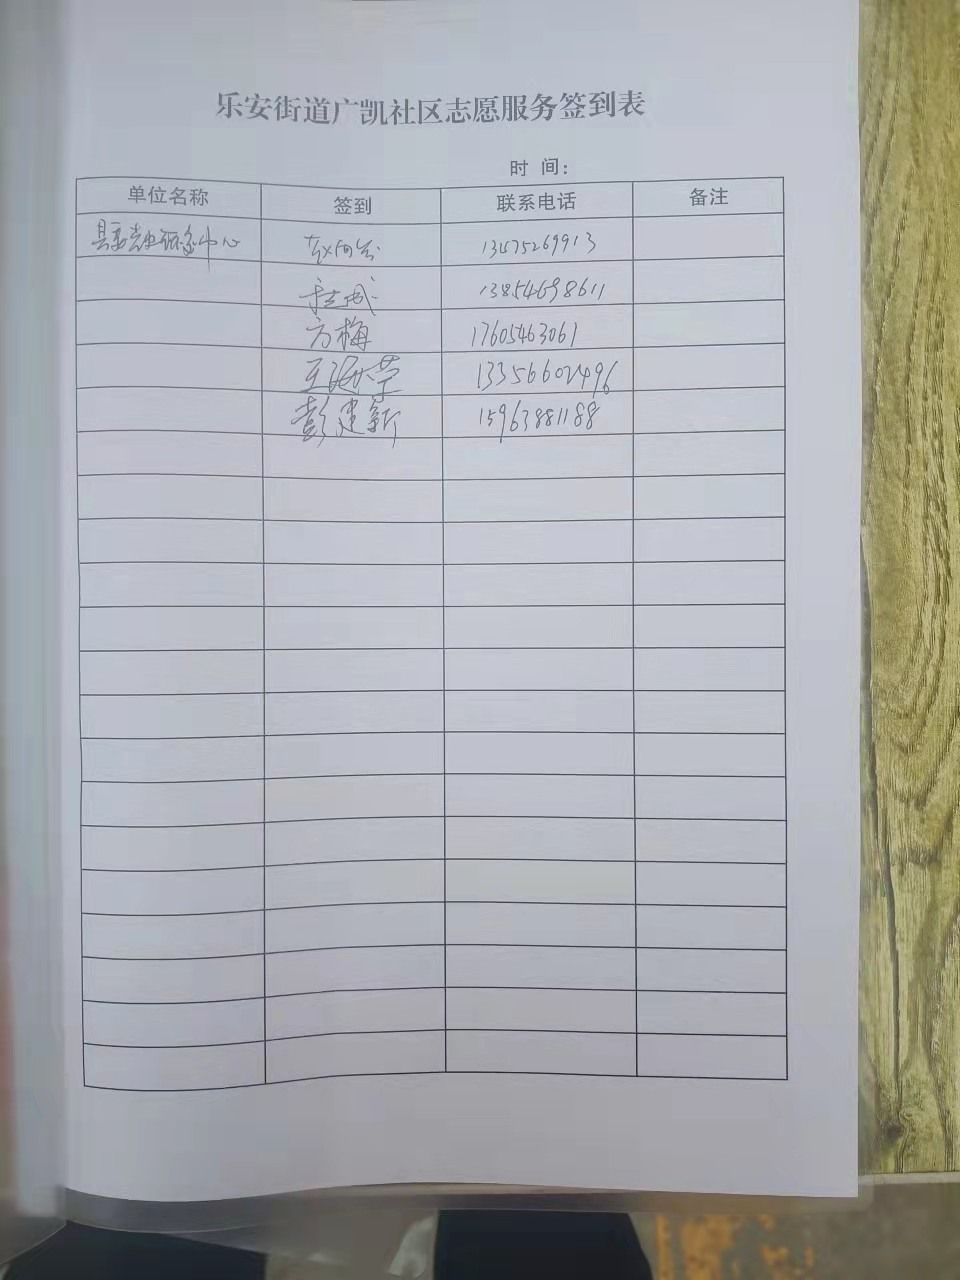 乐安街道广凯社区志愿服务签到表
时 间：
单位名称 签到 联系电话 备注
县委党史研究中心 13475269913
13854698611
方梅 17605463061
王海荣 13356602496
彭建新 15963881188